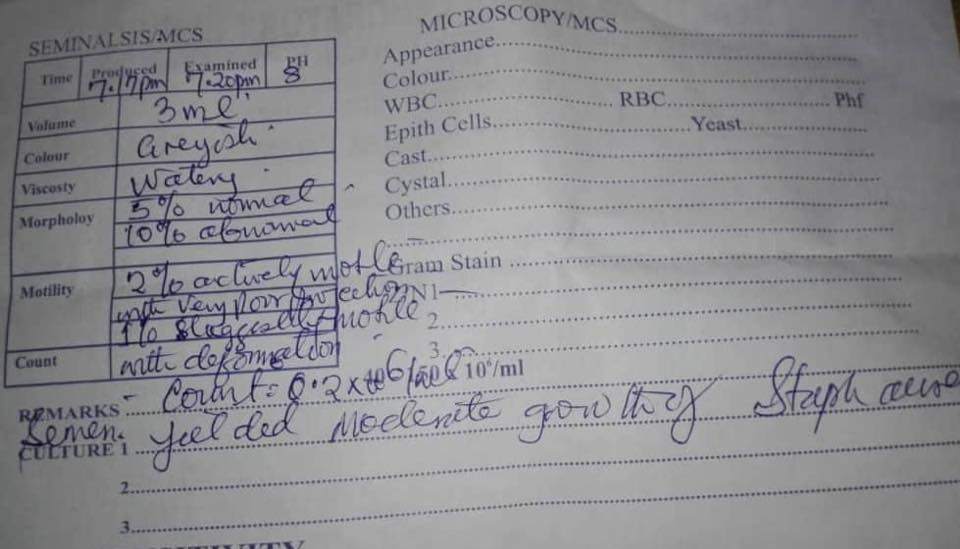 SEMINALSIS/MCS
Time Produced 7.17pm Examined 7.20pm PH 8
Volume 3ml
Colour Greyish
Viscosty Watery
Morpholoy 5% normal
10% abnormal
Motility 2% actively motile
with very poor
1% Sluggishly motile
Count with deformation
Count = 0.2 x 10^6/ml 10⁶/ml
REMARKS
Semen. yielded moderate growth of Staph aure
CULTURE 1
2
3
MICROSCOPY/MCS
Appearance
Colour
WBC RBC Phf
Epith Cells Yeast
Cast
Cystal
Others
Gram Stain
ZN1
2
3